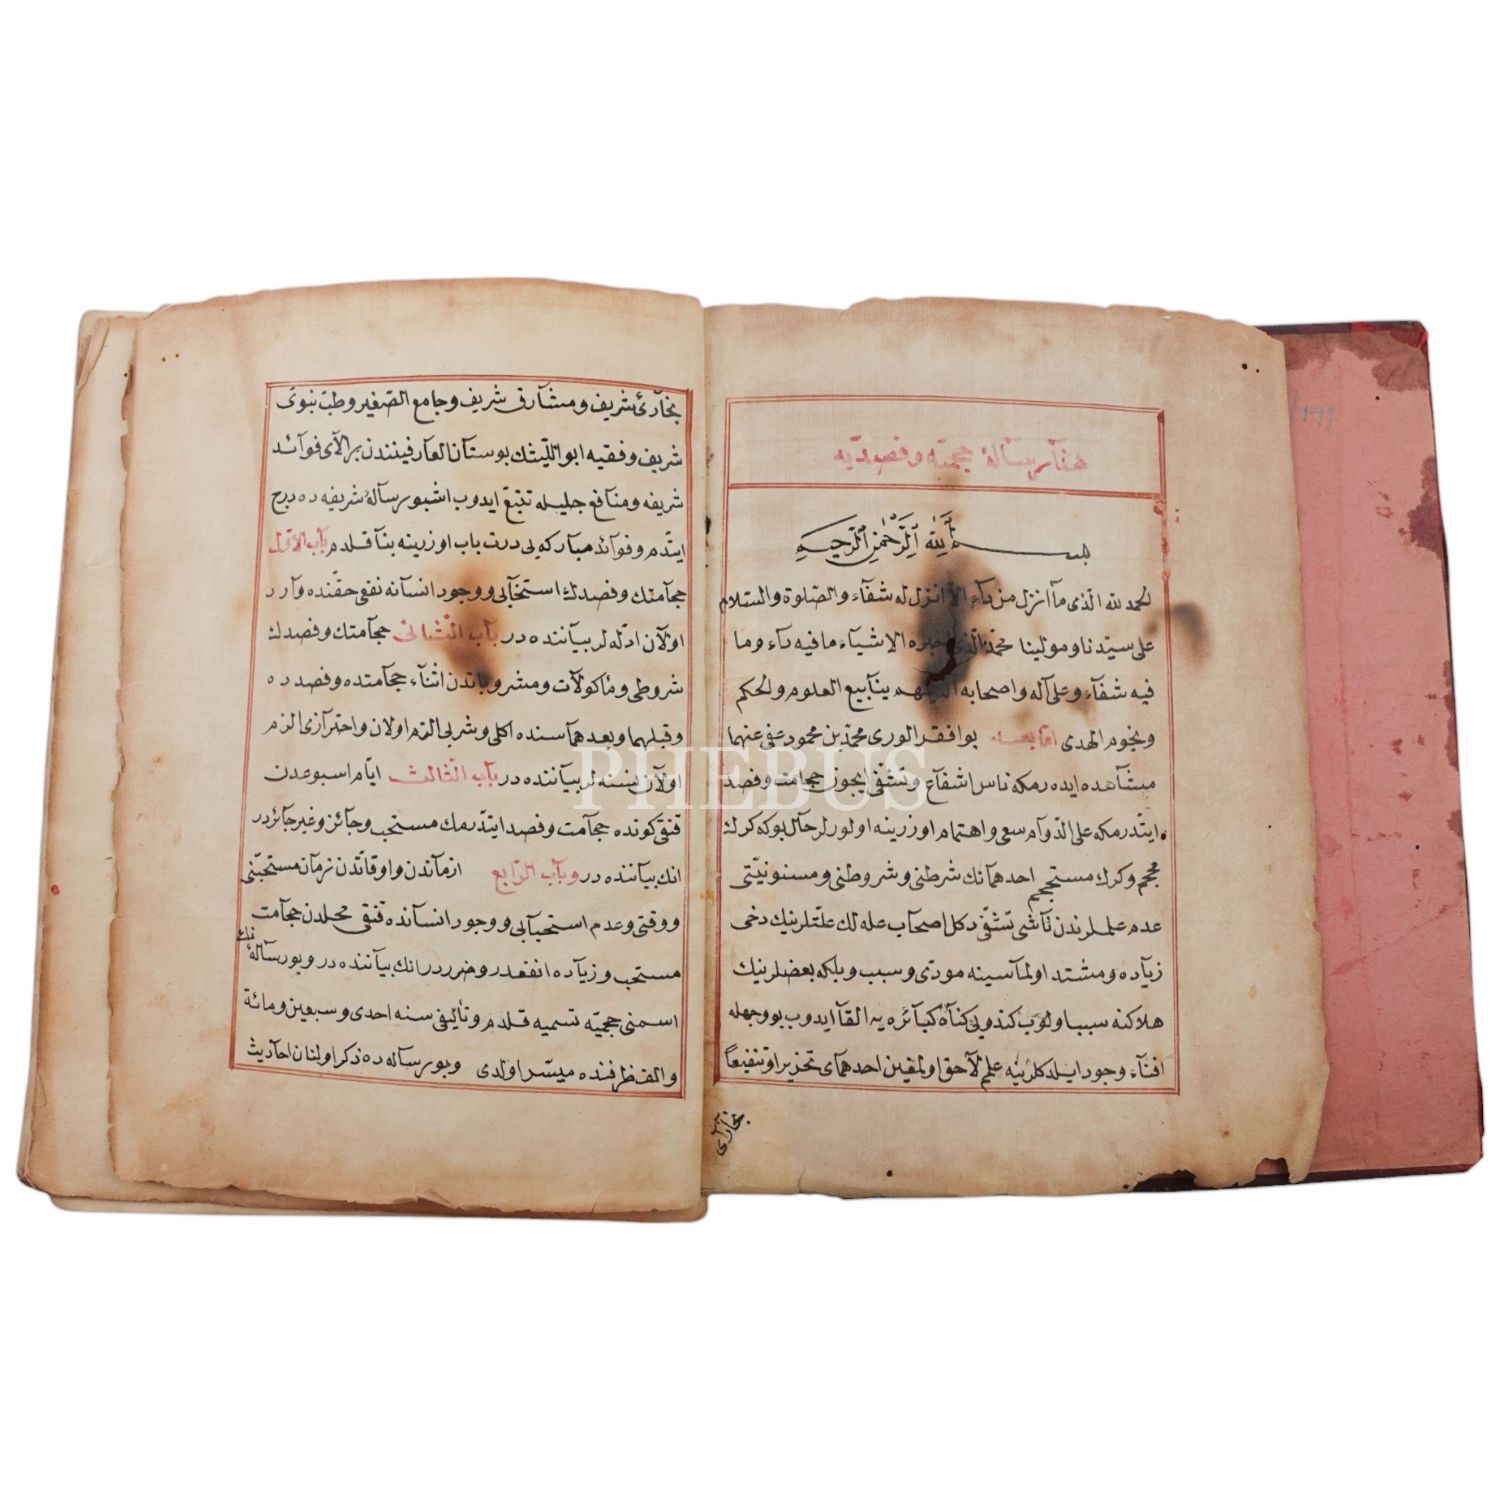 هذا رسالهٔ حجميّه و فصديّه
بسم الله الرّحمن الرّحيم
الحمد لله الّذى ما انزل من دآء الّا انزل له شفآء والصّلوة والسّلام
على سيّدنا ومولينا محمّد الّذى الاشيآء ما فيه دآء وما
فيه شفآء وعلى آله واصحابه ينآبيع العلوم والحكم
ونجوم الهدى امّا بعد بو افقر الورى محمّد بن محمود عفى عنهما
مشآهده ايده رمكه ناس اشفآء وتشفّى يجوز حجآمت وفصد
ايتدرمكه على الدّوآم سعى واهتمام اوزرينه اولورلر حآل بوكه كرك
محجم وكرك مستحجم احدهمآنك شرطنى وشروطنى ومسنونيّتى
عدم علملرندن نآشى تشفّى دكل اصحآب عله لك علّتلرينك دخى
زيآده ومشتد اولمآسينه مودّى وسبب وبلكه بعضلرينك
هلاكنه سبب اولوب كندولى كنآه كبآئره يه القآ ايدوب بو وجهله
افنآء وجود ايلدكلرينه علم لآحق اولمقين احدهمآى تحذيرا وتنفيعاً
بخآرئ
بخآرئ شريف ومشآرق شريف وجامع الصّغير وطبّ نبوى
شريف وفقيه ابو اللّيثك بوستان العآرفينندن بر الآى فوآئد
شريفه ومنآفع جليله تتبّع ايدوب اشبو رسآلهٔ شريفه ده درج
ايتدم وفوآئد مباركه يى درت باب اوزرينه بنآ قلدم بآب الاوّل
حجآمتك وفصدك استحبآبى ووجود انسآنه نفعى حقّنده وآرد
اولآن ادلّه لر بيآننده در بآب الثّانى حجآمتك وفصدك
شروطى ومأكولآت ومشروباتدن اثنآء حجآمتده وفصدده
وقبلهما وبعدهمآسنده اكلى وشربى الزم اولان واحترآزى الزم
اولآن نسنه لر بيآننده در بآب الثّالث ايّام اسبوعدن
قنغى كونده حجآمت وفصد ايتدرمك مستحب وجآئز وغير جآئزدر
انك بيآننده در وبآب الرّابع ازمآندن واوقاتدن زمآن مستحبّنى
ووقتى وعدم استحبآبى ووجود انسآنده قنغى محلدن حجآمت
مستحب وزيآده انفعدر وضرردر انك بيآننده در وبو رسآلهٔ
اسمنى حجميّه تسميه قلدم وتأليفى سنه احدى وسبعين ومائة
والف ظرفنده ميسّر اولدى وبو رسآله ده ذكر اولنان احآديث